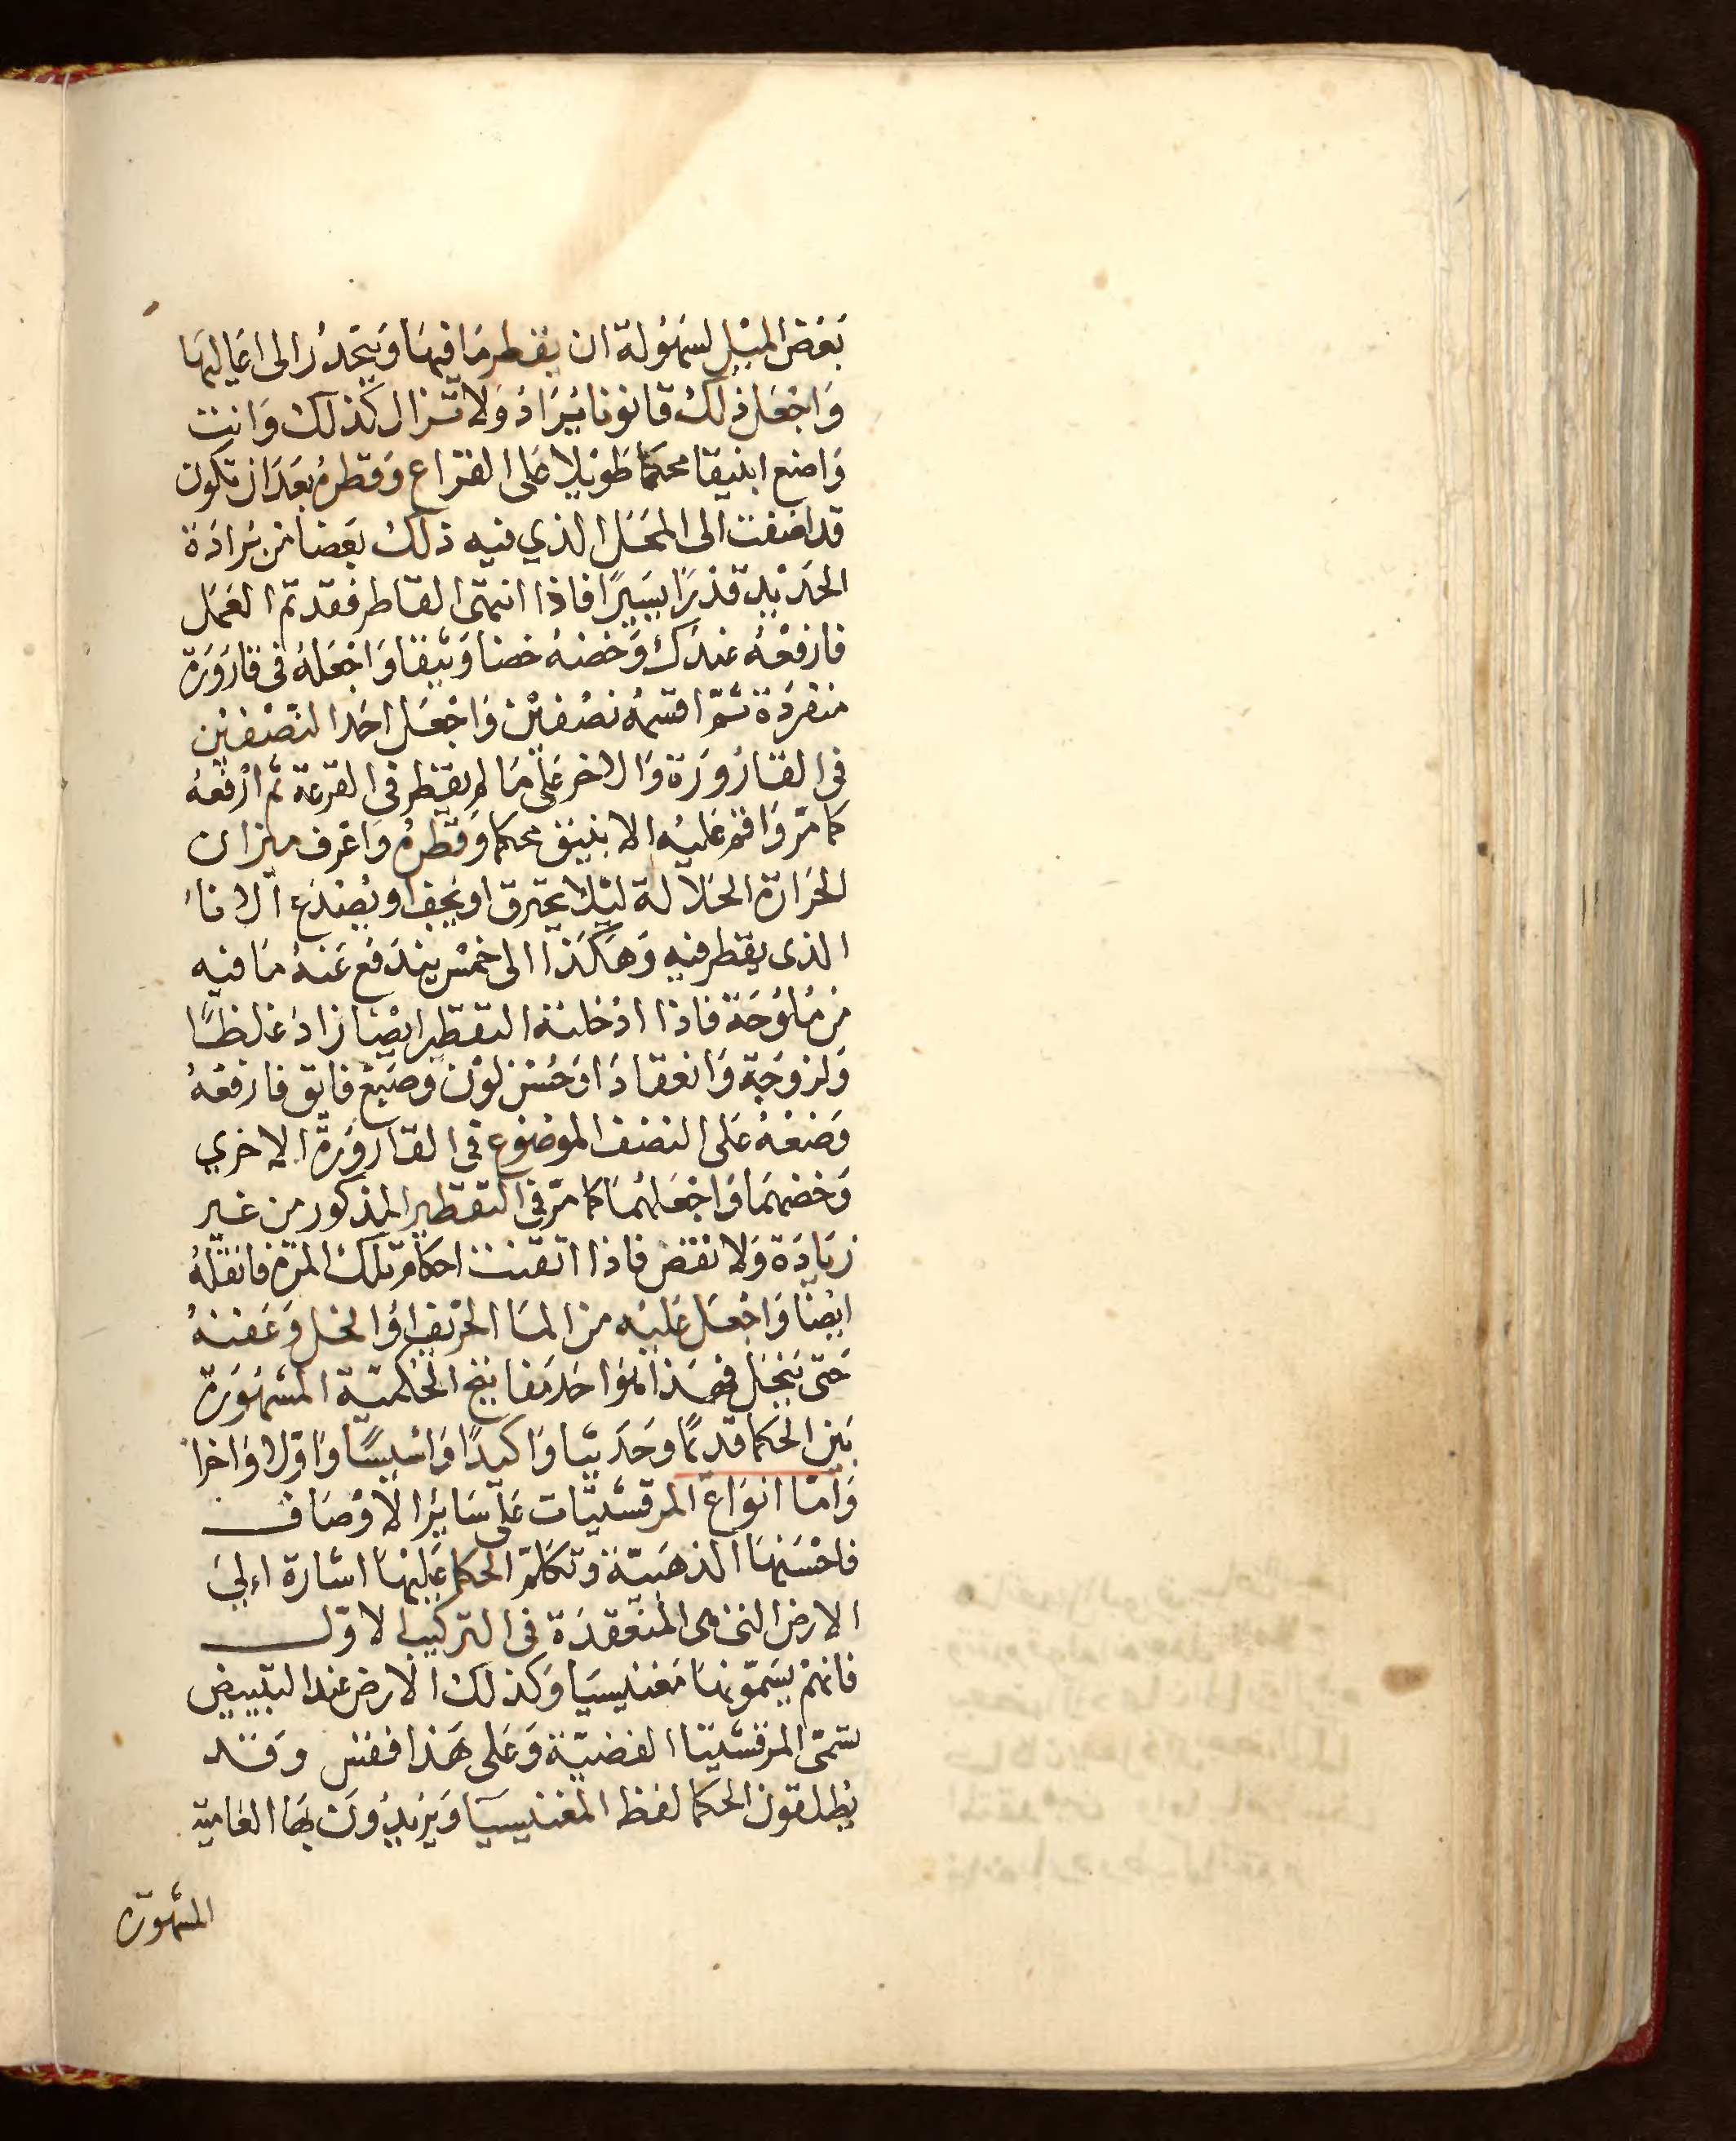 بَعْض المَيْل لسَهُولة ان يقطر مَا فيهَا وَيتحَدرُ الى اعَاليهَا
وَاجْعَل ذلكْ قانونا يُرَادُ وَلا تزال كَذلك وَانت
وَاضع انبيقا محكما طوَيلا عَلى القراع وَقطرهُ بعَد ان تكون
قد اضفت الى المحَل الذي فيه ذلك بَعضا من بُرادَة
الحَديْد قدْرًا يسَيرًا فاذا انتهَى القاطر فقد تم العَمَل
فارفعْهُ عندكْ وَخضنهُ خضنا وَثيقا وَاجْعَلهُ فى قارَورَة
منفردَة ثمّ اقسمهُ نصْفيْن وَاجْعَل احَد النصْفيْن
فى القارُورَة وَالاخر عَلى مَا لم يقطر فى القرعة ثم ارْفعهُ
كما مرّ وَاقم عَليْه الانبيق محكما وَقطرهُ وَاعْرف ميزان
الحَرارَة الحَلالة ليْلا يحترق اويجف اويصْدَع الانا
الذى يقطر فيه وَهَكذا الى خمْس يندَفع عَنهُ مَا فيه
من مُلوُحَة فاذا ادْخلته التقطير ايضْا زادَ غلظًا
وَلزوجَة وَانعقادَا وَحُسْن لوْن وَصَبغ فايق فارفعهُ
وَضعْهُ عَلى النصْف الموضوع فى القارَورَة الاخري
وَخضهمَا وَاجْعَلهُمَا كما مرّ فى التقطير المذكور من غير
زيادَة وَلا نقص فاذا اتقنت احكام تلك المرة فانقلهُ
ايضْا وَاجْعَل عَليْه من المَا الحرْيف اوْ الخل وَعَفنهُ
حَتى ينحَل فهَذا هوَا حَد مَفاتيح الحُكميّة المشهُورَة
بَين الحكما قدمًا وحَديثا وَاكيدًا وَاسْيسًا وَاوّلا وَاخرا
وَامّا انوَاع المرقشيّات عَلى سَاير الاوْصَاف
فاحْسَنهَا الذهَبيّة وَتكلم الحكما عَليْهَا اشارة الي
الارض التى هى المنعَقدَة فى التركيب الاوّل
فانهمْ يسَمّونهَا مَغنيسيَا وَكذلك الارض عند التبييض
تسَمّى المرْقشيْتا الفضيّة وَعَلى هَذا فقس وَقد
يْطلقون الحكما لفظ المغنيسيَا وَيريْدُون بهَا العَاميَة
المشهورَة